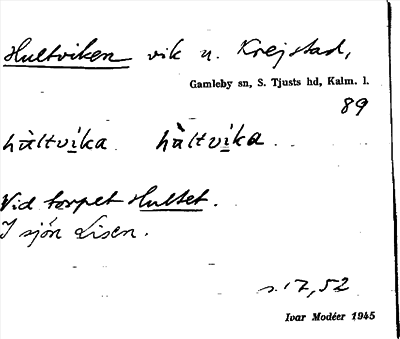 Hultviken vik u. Krejstad,
Gamleby sn, S. Tjusts hd, Kalm. l.
89
hùltvi̱ka hùltvi̱ka
Vid torpet Hultet.
I sjön Lisen.
s. 17, 52
Ivar Modéer 1945